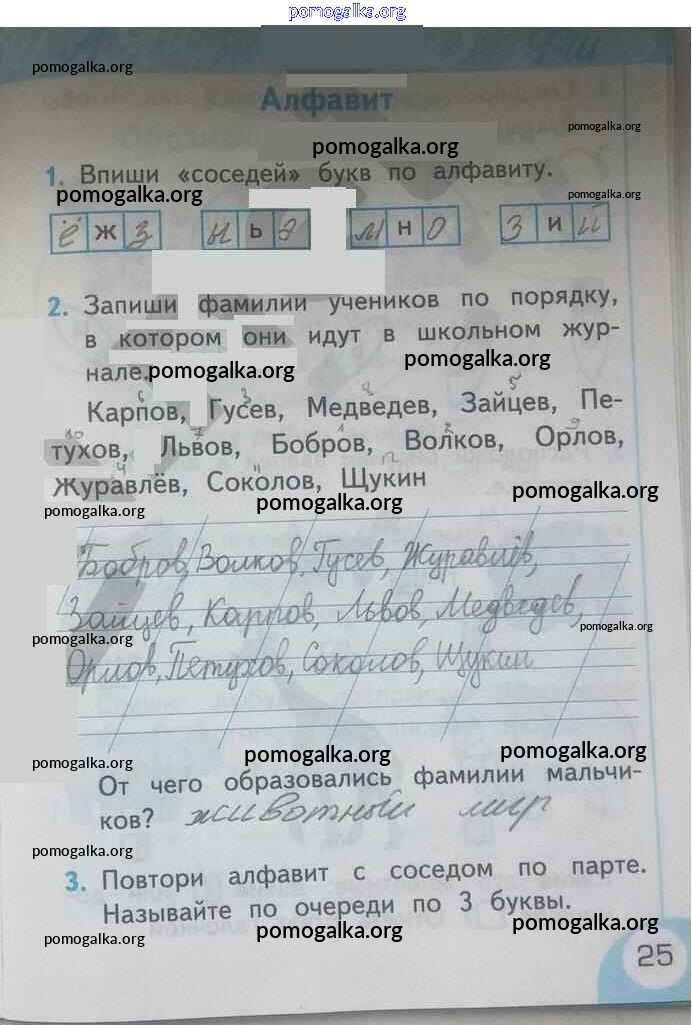 pomogalka.org
pomogalka.org
Алфавит
pomogalka.org
pomogalka.org
1. Впиши «соседей» букв по алфавиту.
pomogalka.org
pomogalka.org
ё ж з ы ь э м н о з и й
2. Запиши фамилии учеников по порядку,
в котором они идут в школьном жур-
нале.
pomogalka.org
pomogalka.org
8 5
6 3
Карпов, Гусев, Медведев, Зайцев, Пе-
10 7 1 2 9
тухов, Львов, Бобров, Волков, Орлов,
4 11 12
Журавлёв, Соколов, Щукин
pomogalka.org
pomogalka.org
pomogalka.org
Бобров, Волков, Гусев, Журавлёв,
Зайцев, Карпов, Львов, Медведев,
pomogalka.org
pomogalka.org
Орлов, Петухов, Соколов, Щукин
pomogalka.org
pomogalka.org
pomogalka.org
От чего образовались фамилии мальчи-
ков? животный мир
pomogalka.org
3. Повтори алфавит с соседом по парте.
Называйте по очереди по 3 буквы.
pomogalka.org
pomogalka.org
pomogalka.org
25